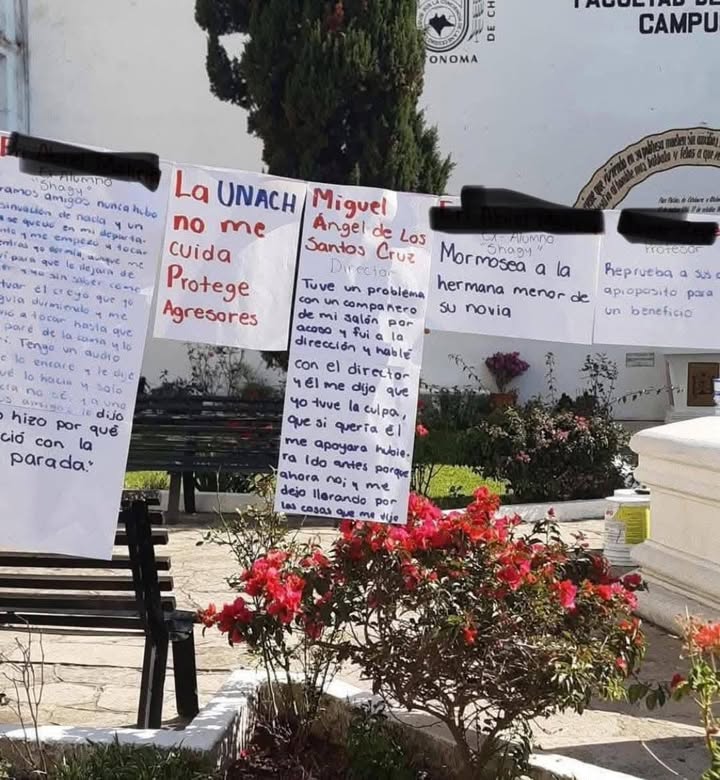 FACULTAD DE
CAMPU
DE CH
ONOMA
Alumno
"Shagy"
ramos amigos nunca hubo
sinuación de nada y un
se quedo en mi departa-
nto y me empezó a tocar
entras yo dormia, aunque me
ví para que lo dejara de
er y yo sin saber como
tuar el creyo que yo
guía durmiendo y me
vió a tocar hasta que
pare de la cama y lo
i. Tengo un audio
e lo encare y le dije
ué lo hacia y solo
no sé, ya uno
s amigos le dijo
o hizo por qué
ció con la
parada."
La UNACH
no me
cuida
Protege
Agresores
Miguel
Ángel de Los
Santos Cruz
Director
Tuve un problema
con un compañero
de mi salón por
acoso y fui a la
dirección y hablé
con el director
y él me dijo que
yo tuve la culpa,
que si quería él
me apoyara hubie-
ra ido antes porque
ahora no; y me
dejo llorando por
las cosas que me dijo
Ex-Alumno
"Shagy"
Mormosea a la
hermana menor de
su novia
Profesor
Reprueba a sus a
apioposito para
un beneficio